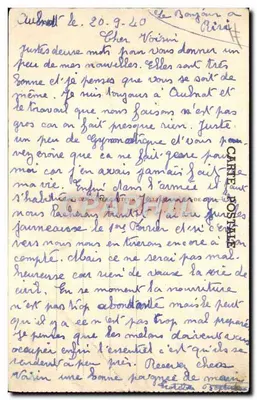 Aulnat le. 20-9-40
Le Bonjour a
Riri
Cher Voisin
Justes deux mots pour vous donner un
peu de mes nouvelles. Elles sont très
bonne et j'e penses que vous se soit de
même. Je suis toujours à Aulnat et
le travail que nous faisons n'est pas
gros car on fait presque rien. Juste
un peu de Gymnastique et vous pou-
vez croire que ca ne fait guere pour
moi car j'en avais jamais fait de
ma vie. Enfin dans l'armée il faut
nous
le 1er
vers nous nous en tirerons encore à bon
compte. Mais ce ne serai pas mal-
heureuse car rieni de vaux la vie de
civil. En se moment la nourriture
n'est pas trop abondante mais le peut
qui il y a ce n'est pas trop mal preparé
Je penses que les melons doivent vous
occuper enfin l'essentiel c'est qu'ils se
vendent à peu près. Recevez cher
Voisin une bonne poignée de main
CARTE POSTALE